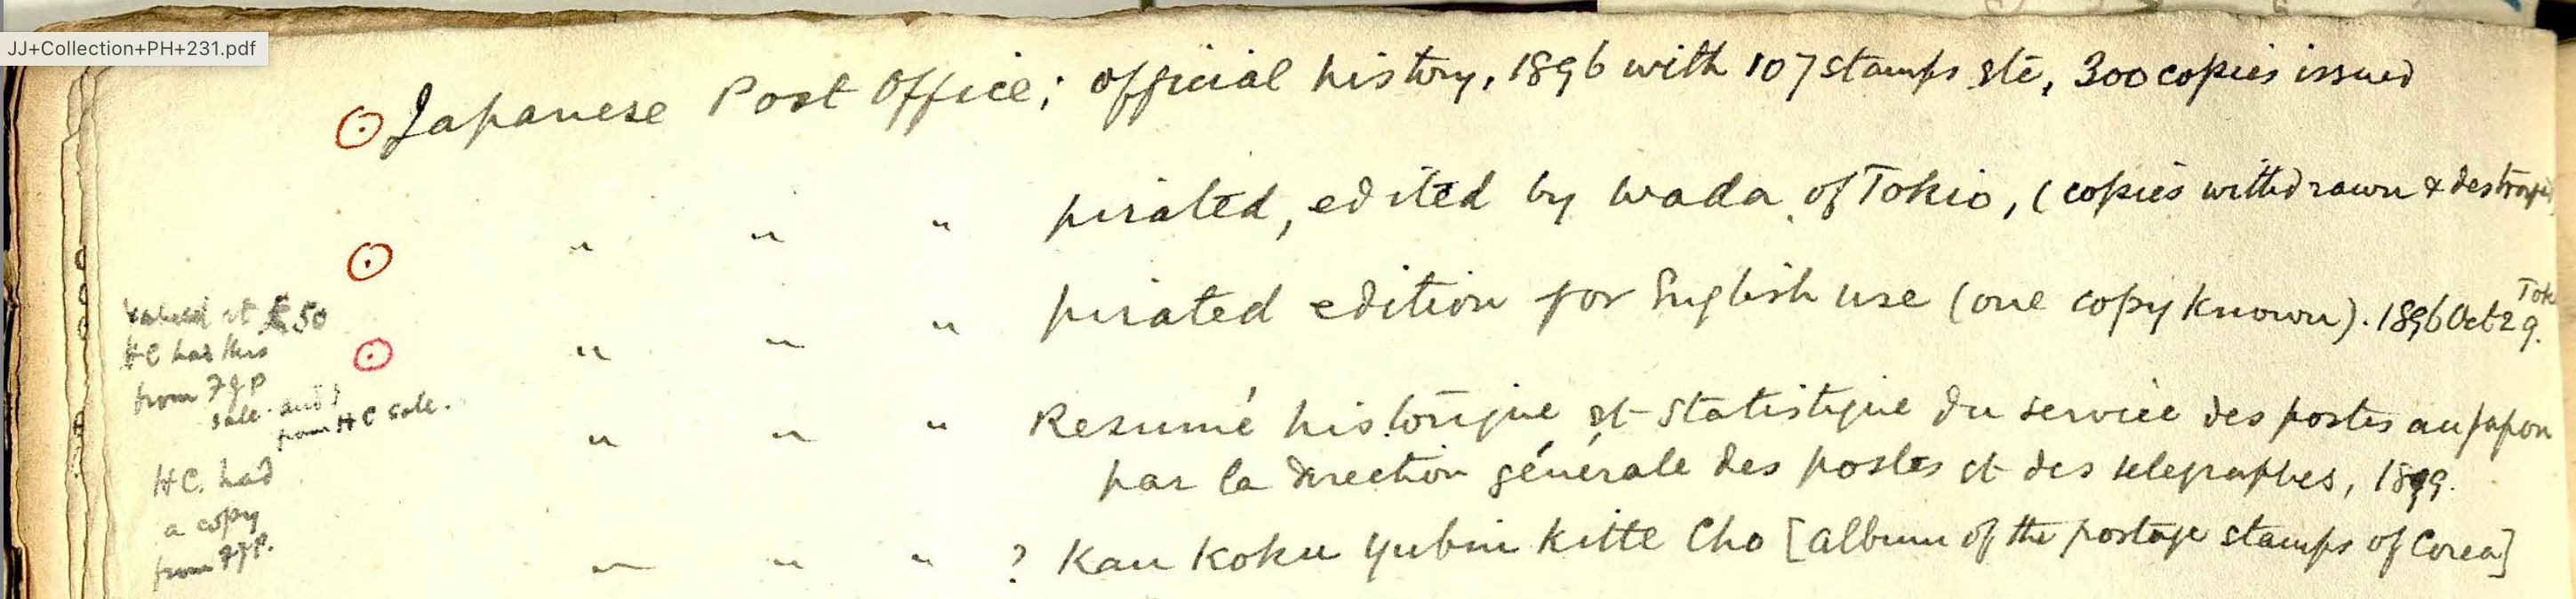 JJ+Collection+PH+231.pdf
Japanese Post Office; official history, 1896 with 107 stamps etc, 300 copies issued
" " " pirated, edited by Wada of Tokio, (copies withdrawn & destroyed
" " " pirated edition for English use (one copy known). 1896 Oct 29.
valued at £50
HC had this
from
sale. and
from HC sale.
" " " Resumé historique et statistique du service des postes au Japon
par la direction générale des postes et des telegraphes, 1899.
HC. had
a copy
from
" " " ? Kan Koku Yubin Kitte Cho [album of the postage stamps of Corea]